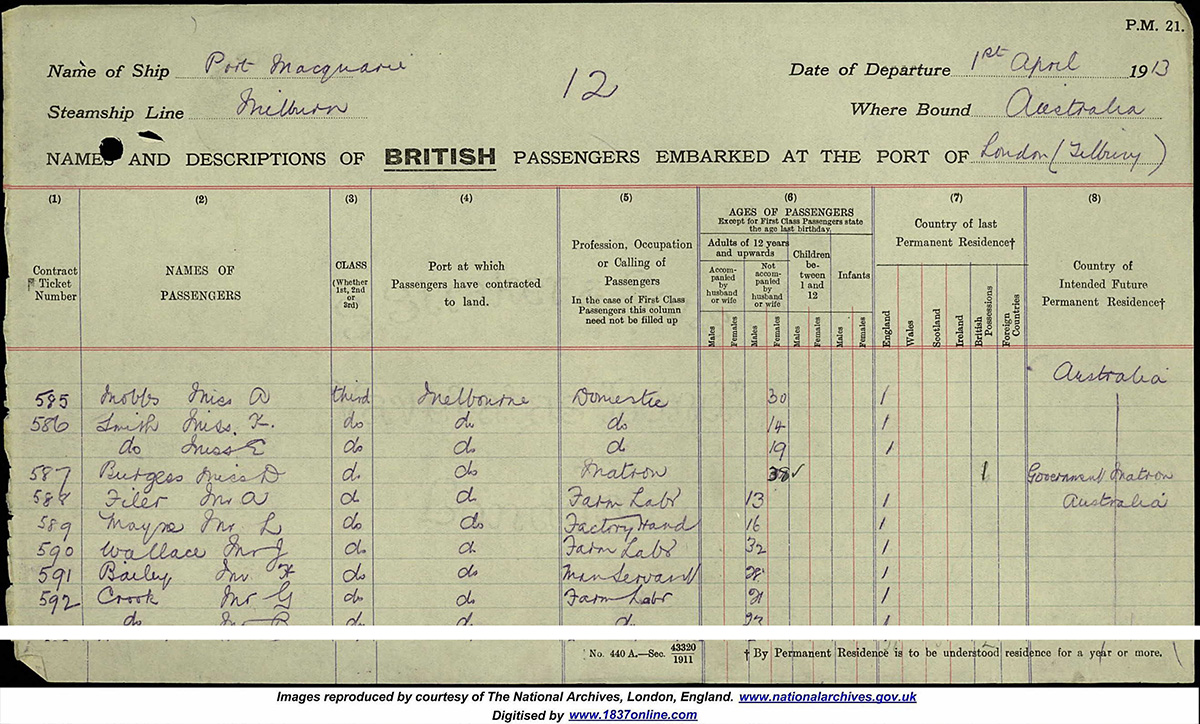 P.M. 21.
Name of Ship Port Macquarie 12 Date of Departure 1st April 1913
Steamship Line Milburn Where Bound Australia
NAMES AND DESCRIPTIONS OF BRITISH PASSENGERS EMBARKED AT THE PORT OF London (Tilbury)
(1) (2) (3) (4) (5) (6) (7) (8)
Contract Ticket Number
NAMES OF PASSENGERS
CLASS (Whether 1st, 2nd or 3rd)
Port at which Passengers have contracted to land.
Profession, Occupation or Calling of Passengers
In the case of First Class Passengers this column need not be filled up
AGES OF PASSENGERS
Except for First Class Passengers state the age last birthday.
Adults of 12 years and upwards
Accompanied by husband or wife
Not accompanied by husband or wife
Children between 1 and 12
Infants
Males Females Males Females Males Females Males Females
Country of last Permanent Residence†
England Wales Scotland Ireland British Possessions Foreign Countries
Country of Intended Future Permanent Residence†
Australia
585 Mobbs Miss A third Melbourne Domestic 30 1
586 Smith Miss K. do do do 14 1
do Miss E do do do 19 1
587 Burgess Miss D do do Matron 38 ✓ 1 Government Matron
588 Filer Mr A do do Farm Labr 13 1 Australia
589 Mr L do do Factory Hand 16 1
590 Wallace Mr J do do Farm Labr 32 1
591 Bailey Mr do do Man Servant 28 1
592 Crook Mr G do do Farm Labr 21 1
do Mr do do do
No. 440 A.—Sec. 43320/1911 † By Permanent Residence is to be understood residence for a year or more.
Images reproduced by courtesy of The National Archives, London, England. www.nationalarchives.gov.uk
Digitised by www.1837online.com